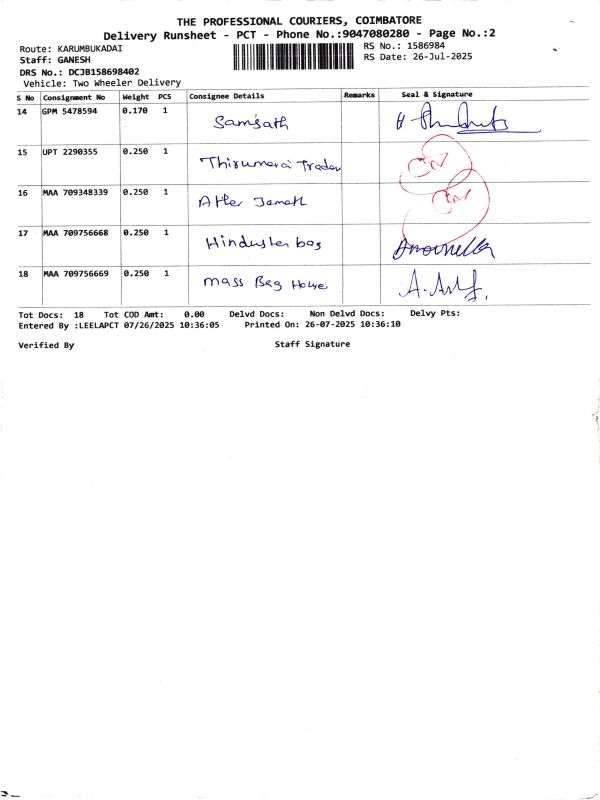 THE PROFESSIONAL COURIERS, COIMBATORE
Delivery Runsheet - PCT - Phone No.:9047080280 - Page No.:2
Route: KARUMBUKADAI
RS No.: 1586984
Staff: GANESH
RS Date: 26-Jul-2025
DRS No.: DCJB158698402
Vehicle: Two Wheeler Delivery
S No Consignment No Weight PCS Consignee Details Remarks Seal & Signature
14 GPM 5478594 0.170 1 Samsath
15 UPT 2290355 0.250 1 Thirumarai Trader
16 MAA 709348339 0.250 1
17 MAA 709756668 0.250 1 Hindusten bag
18 MAA 709756669 0.250 1 Mass Bag House
Tot Docs: 18 Tot COD Amt: 0.00 Delvd Docs: Non Delvd Docs: Delvy Pts:
Entered By :LEELAPCT 07/26/2025 10:36:05 Printed On: 26-07-2025 10:36:10
Verified By Staff Signature